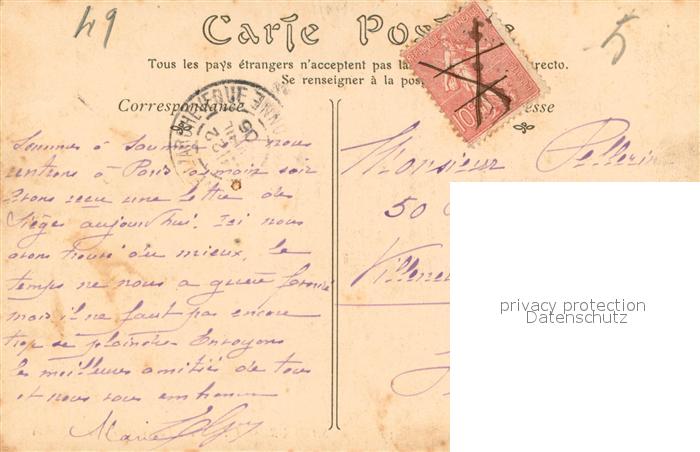 49
5
Carte Pos
Tous les pays étrangers n'acceptent pas la recto.
Se renseigner à la pos
Correspondance
esse
Sommes à Saumur nous
rentrons à Paris demain soir
Avons reçu une lettre de
Lièges aujourdhui. Ici nous
avons trouvé du mieux, le
temps ne nous a guère favorisé
mais il ne faut pas encore
trop se plaindre. Envoyons
les meilleures amitiés de tous
et nous vous embrassons
Marie
Monsieur Pellerin
50
Villeneu
10
privacy protection
Datenschutz